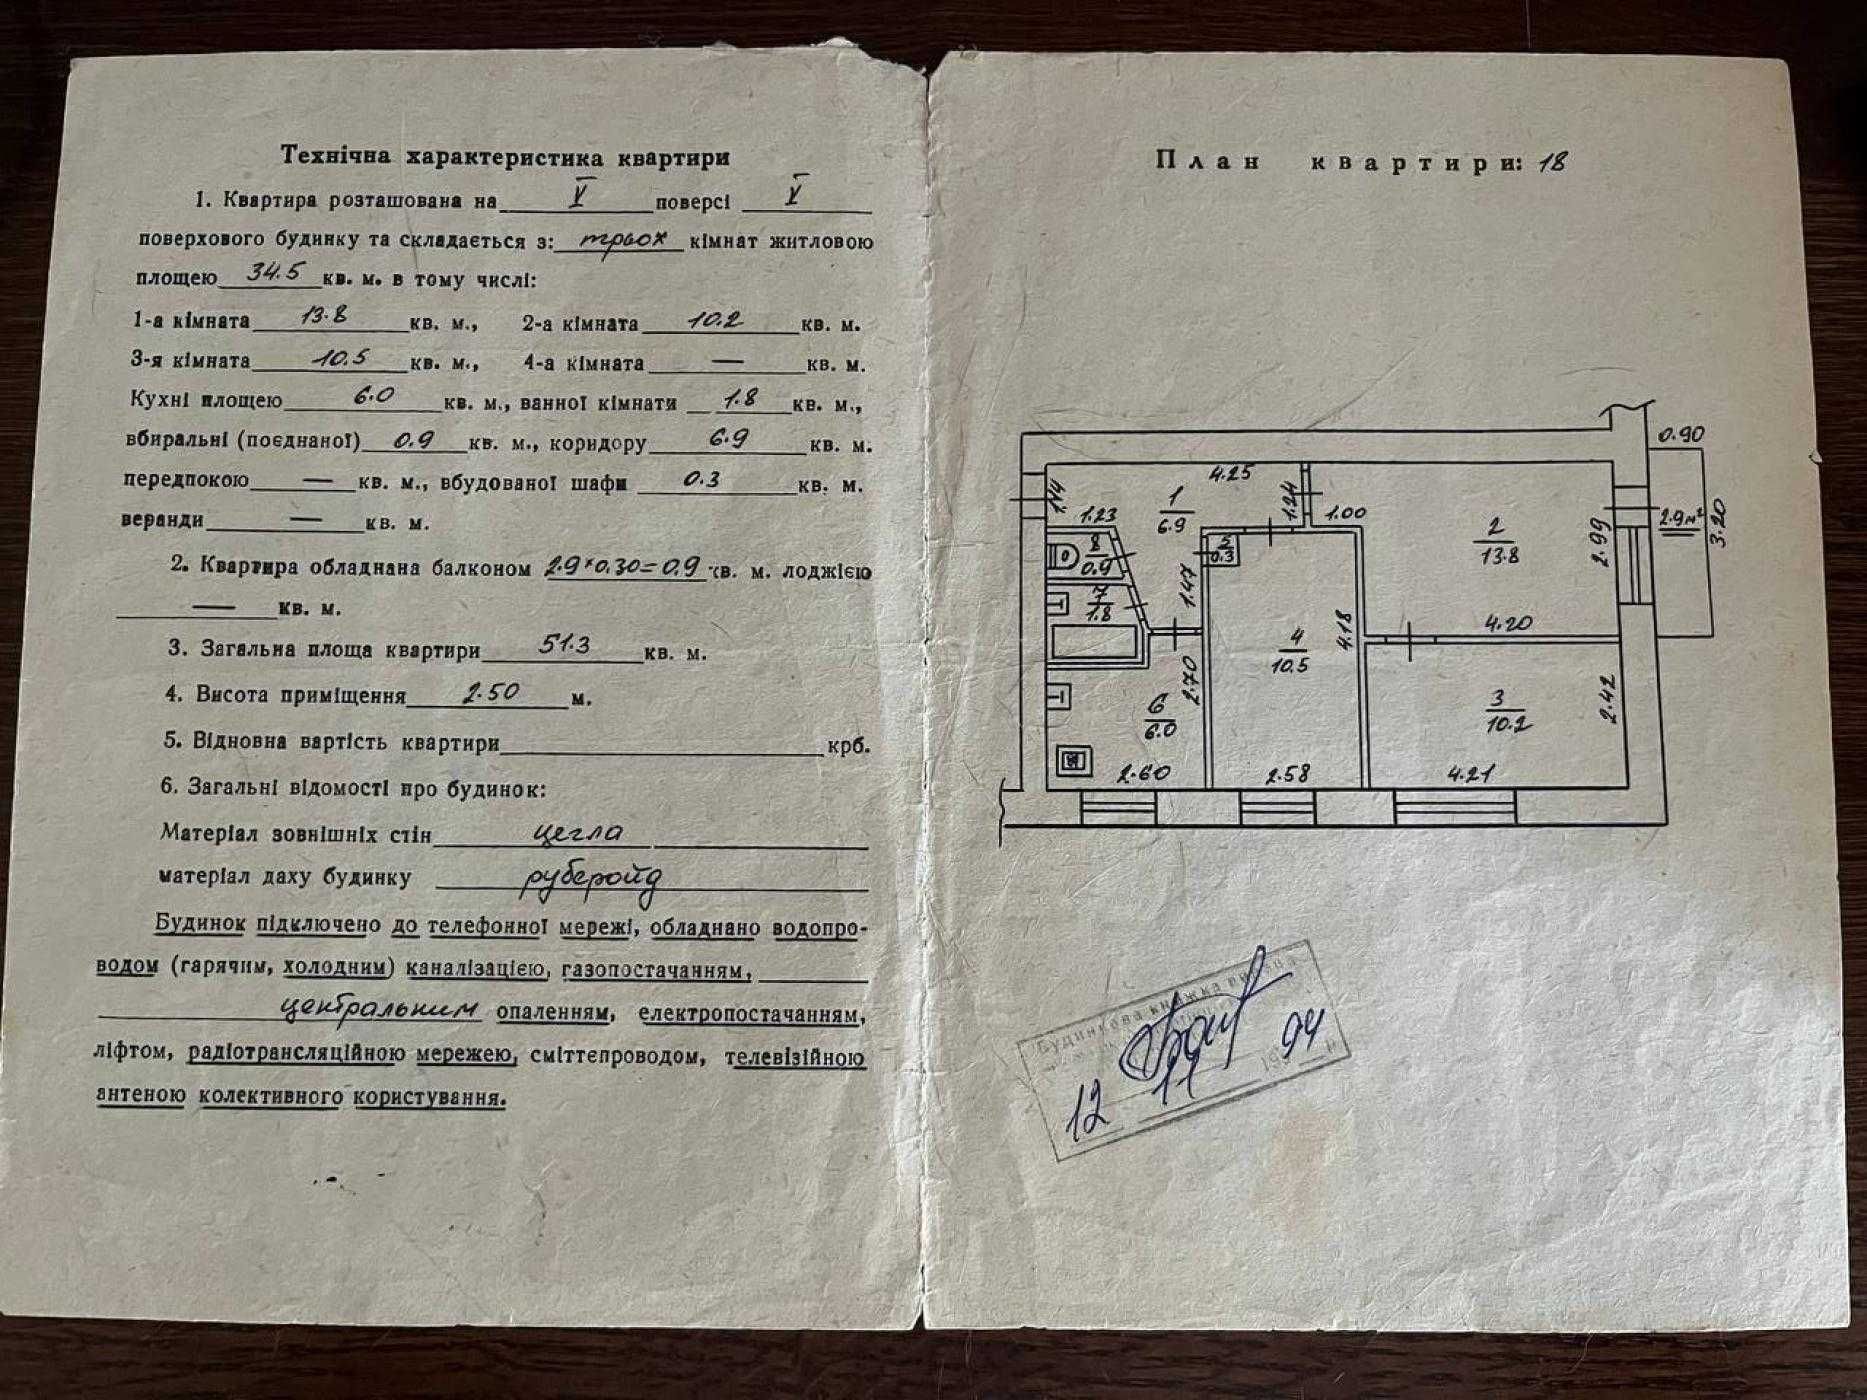 Технічна характеристика квартири
1. Квартира розташована на V поверсі V
поверхового будинку та складається з: трьох кімнат житловою
площею 34.5 кв. м. в тому числі:
1-а кімната 13.8 кв. м., 2-а кімната 10.2 кв. м.
3-я кімната 10.5 кв. м., 4-а кімната — кв. м.
Кухні площею 6.0 кв. м., ванної кімнати 1.8 кв. м.,
вбиральні (поєднаної) 0.9 кв. м., коридору 6.9 кв. м.
передпокою — кв. м., вбудованої шафи 0.3 кв. м.
веранди — кв. м.
2. Квартира обладнана балконом 2.9*0.30=0.9 кв. м. лоджією
— кв. м.
3. Загальна площа квартири 51.3 кв. м.
4. Висота приміщення 2.50 м.
5. Відновна вартість квартири крб.
6. Загальні відомості про будинок:
Матеріал зовнішніх стін цегла
матеріал даху будинку руберойд
Будинок підключено до телефонної мережі, обладнано водопро-
водом (гарячим, холодним) каналізацією, газопостачанням,
центральним опаленням, електропостачанням,
ліфтом, радіотрансляційною мережею, сміттєпроводом, телевізійною
антеною колективного користування.
План квартири: 18
0.90
4.25
1.14
1
6.9
1.24
1.00
1.23
2
13.8
2.99
2.9м²
3.20
8
0.9
5
0.3
1.47
7
1.8
4.18
4.20
4
10.5
2.70
6
6.0
3
10.2
2.42
2.60
2.58
4.21
Будинкова книжка видана
12 11 1994